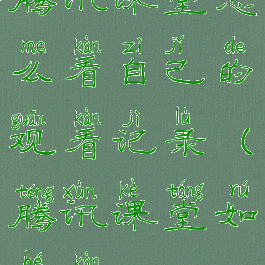 腾讯课堂怎
me kàn zì jǐ de
么看自己的
guān kàn jì lù
观看记录（
téng xùn kè táng rú
腾讯课堂如
hé kàn